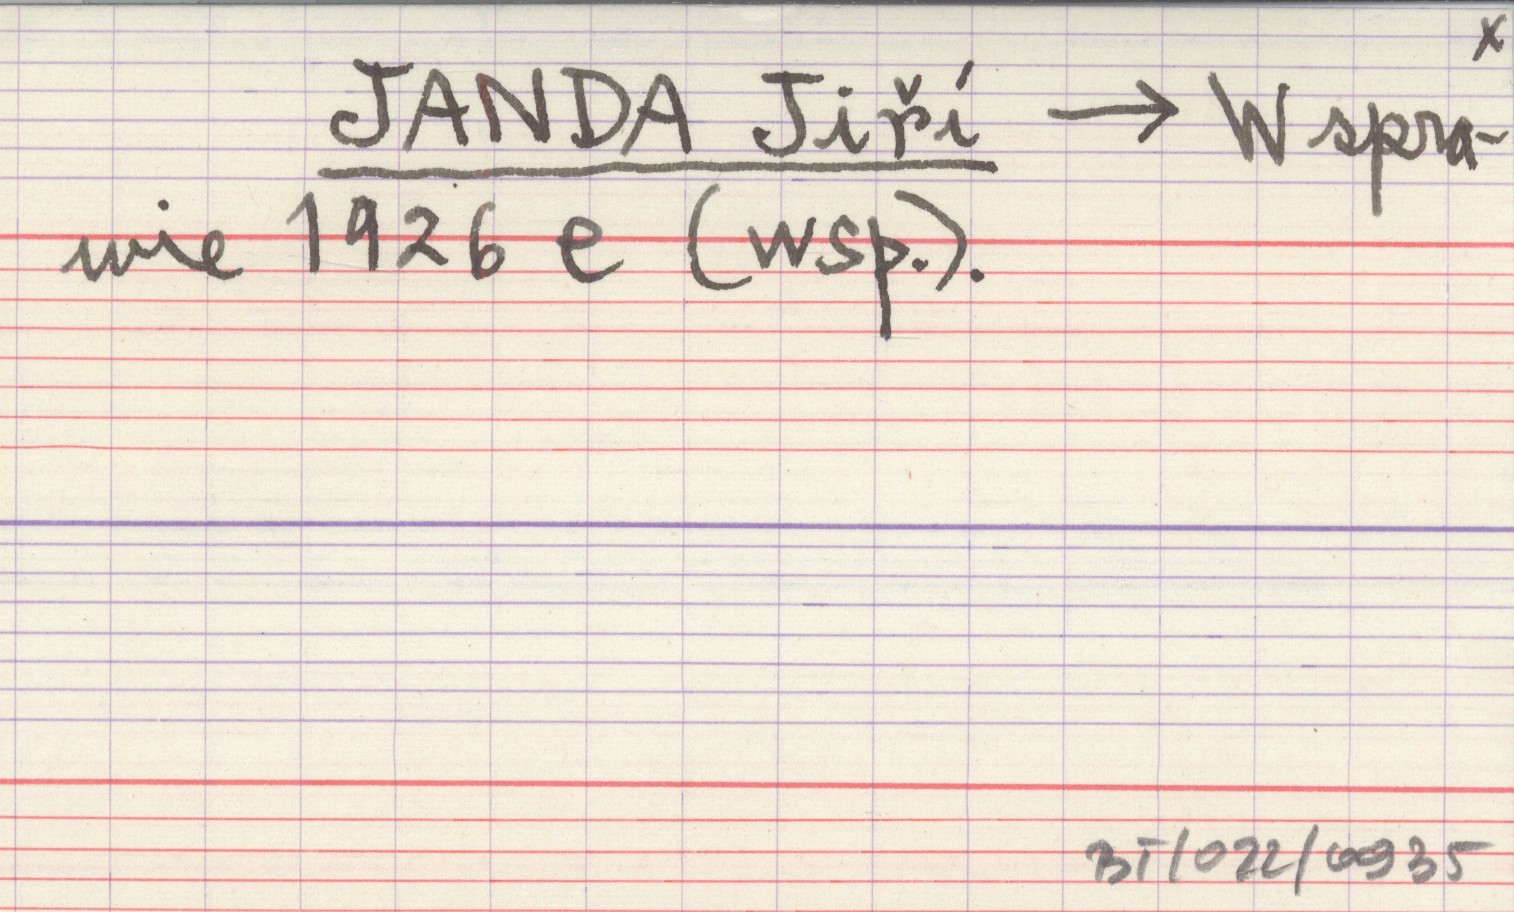 x
JANDA Jiří → W spra-
wie 1926 e (wsp.).
BT/022/0935